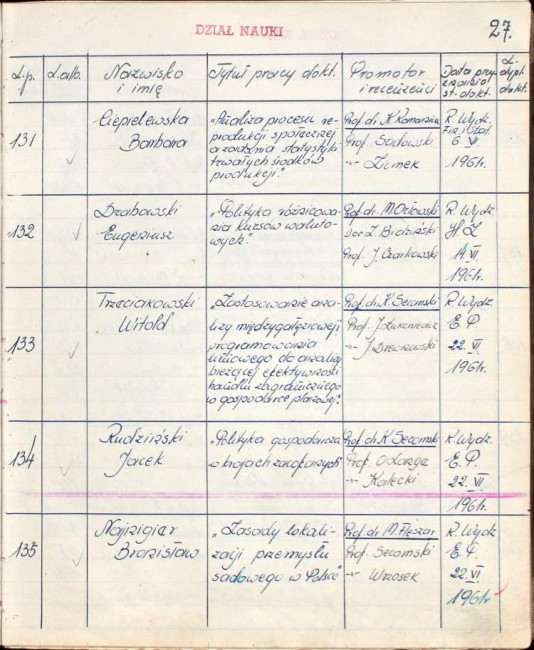 DZIAŁ NAUKI
27.
L.p.
L.alb.
Nazwisko
i imię
Tytuł pracy dokt.
Promotor
i recenzenci
Data przy-
znania
st. dokt.
L.
dypl.
dokt.
131
Ciepielewska
Barbara
"Analiza procesu re-
produkcji społecznej
a zadania statystyki
trwałych środków
produkcji."
Prof. dr. K. Romaniuk
Prof. Sadowski
-"- Żurek
R. Wydz.
Fin. i Stat.
6 VI
1961r.
132
Drabowski
Eugeniusz
"Polityka różnicowa-
nia kursów waluto-
wych."
Prof. dr. M. Orłowski
Doc. Z.
Prof. J.
R. Wydz.
H. Z.
14 VI
1961r.
133
Trzeciakowski
Witold
"Zastosowanie ana-
lizy międzygałęziowej
programowania
liniowego do analizy
bieżącej efektywności
handlu zagranicznego
w gospodarce planowej."
Prof. dr. K. Secomski
Prof. J. Łukasiewicz
-"- J. Drewnowski
R. Wydz.
E. P.
22. VI
1961r.
134
Rudziński
Jacek
"Polityka gospodarcza
w krajach zacofanych"
Prof. dr. K. Secomski
Prof.
-"- Kalecki
R. Wydz.
E. P.
22. VI
1961r.
135
Najzigier
Bronisław
"Zasady lokali-
zacji przemysłu
sadowego w Polsce"
Prof. dr. M. Fleszar
Prof. Secomski
-"- Wrzosek
R. Wydz
E. P.
22. VI
1961r